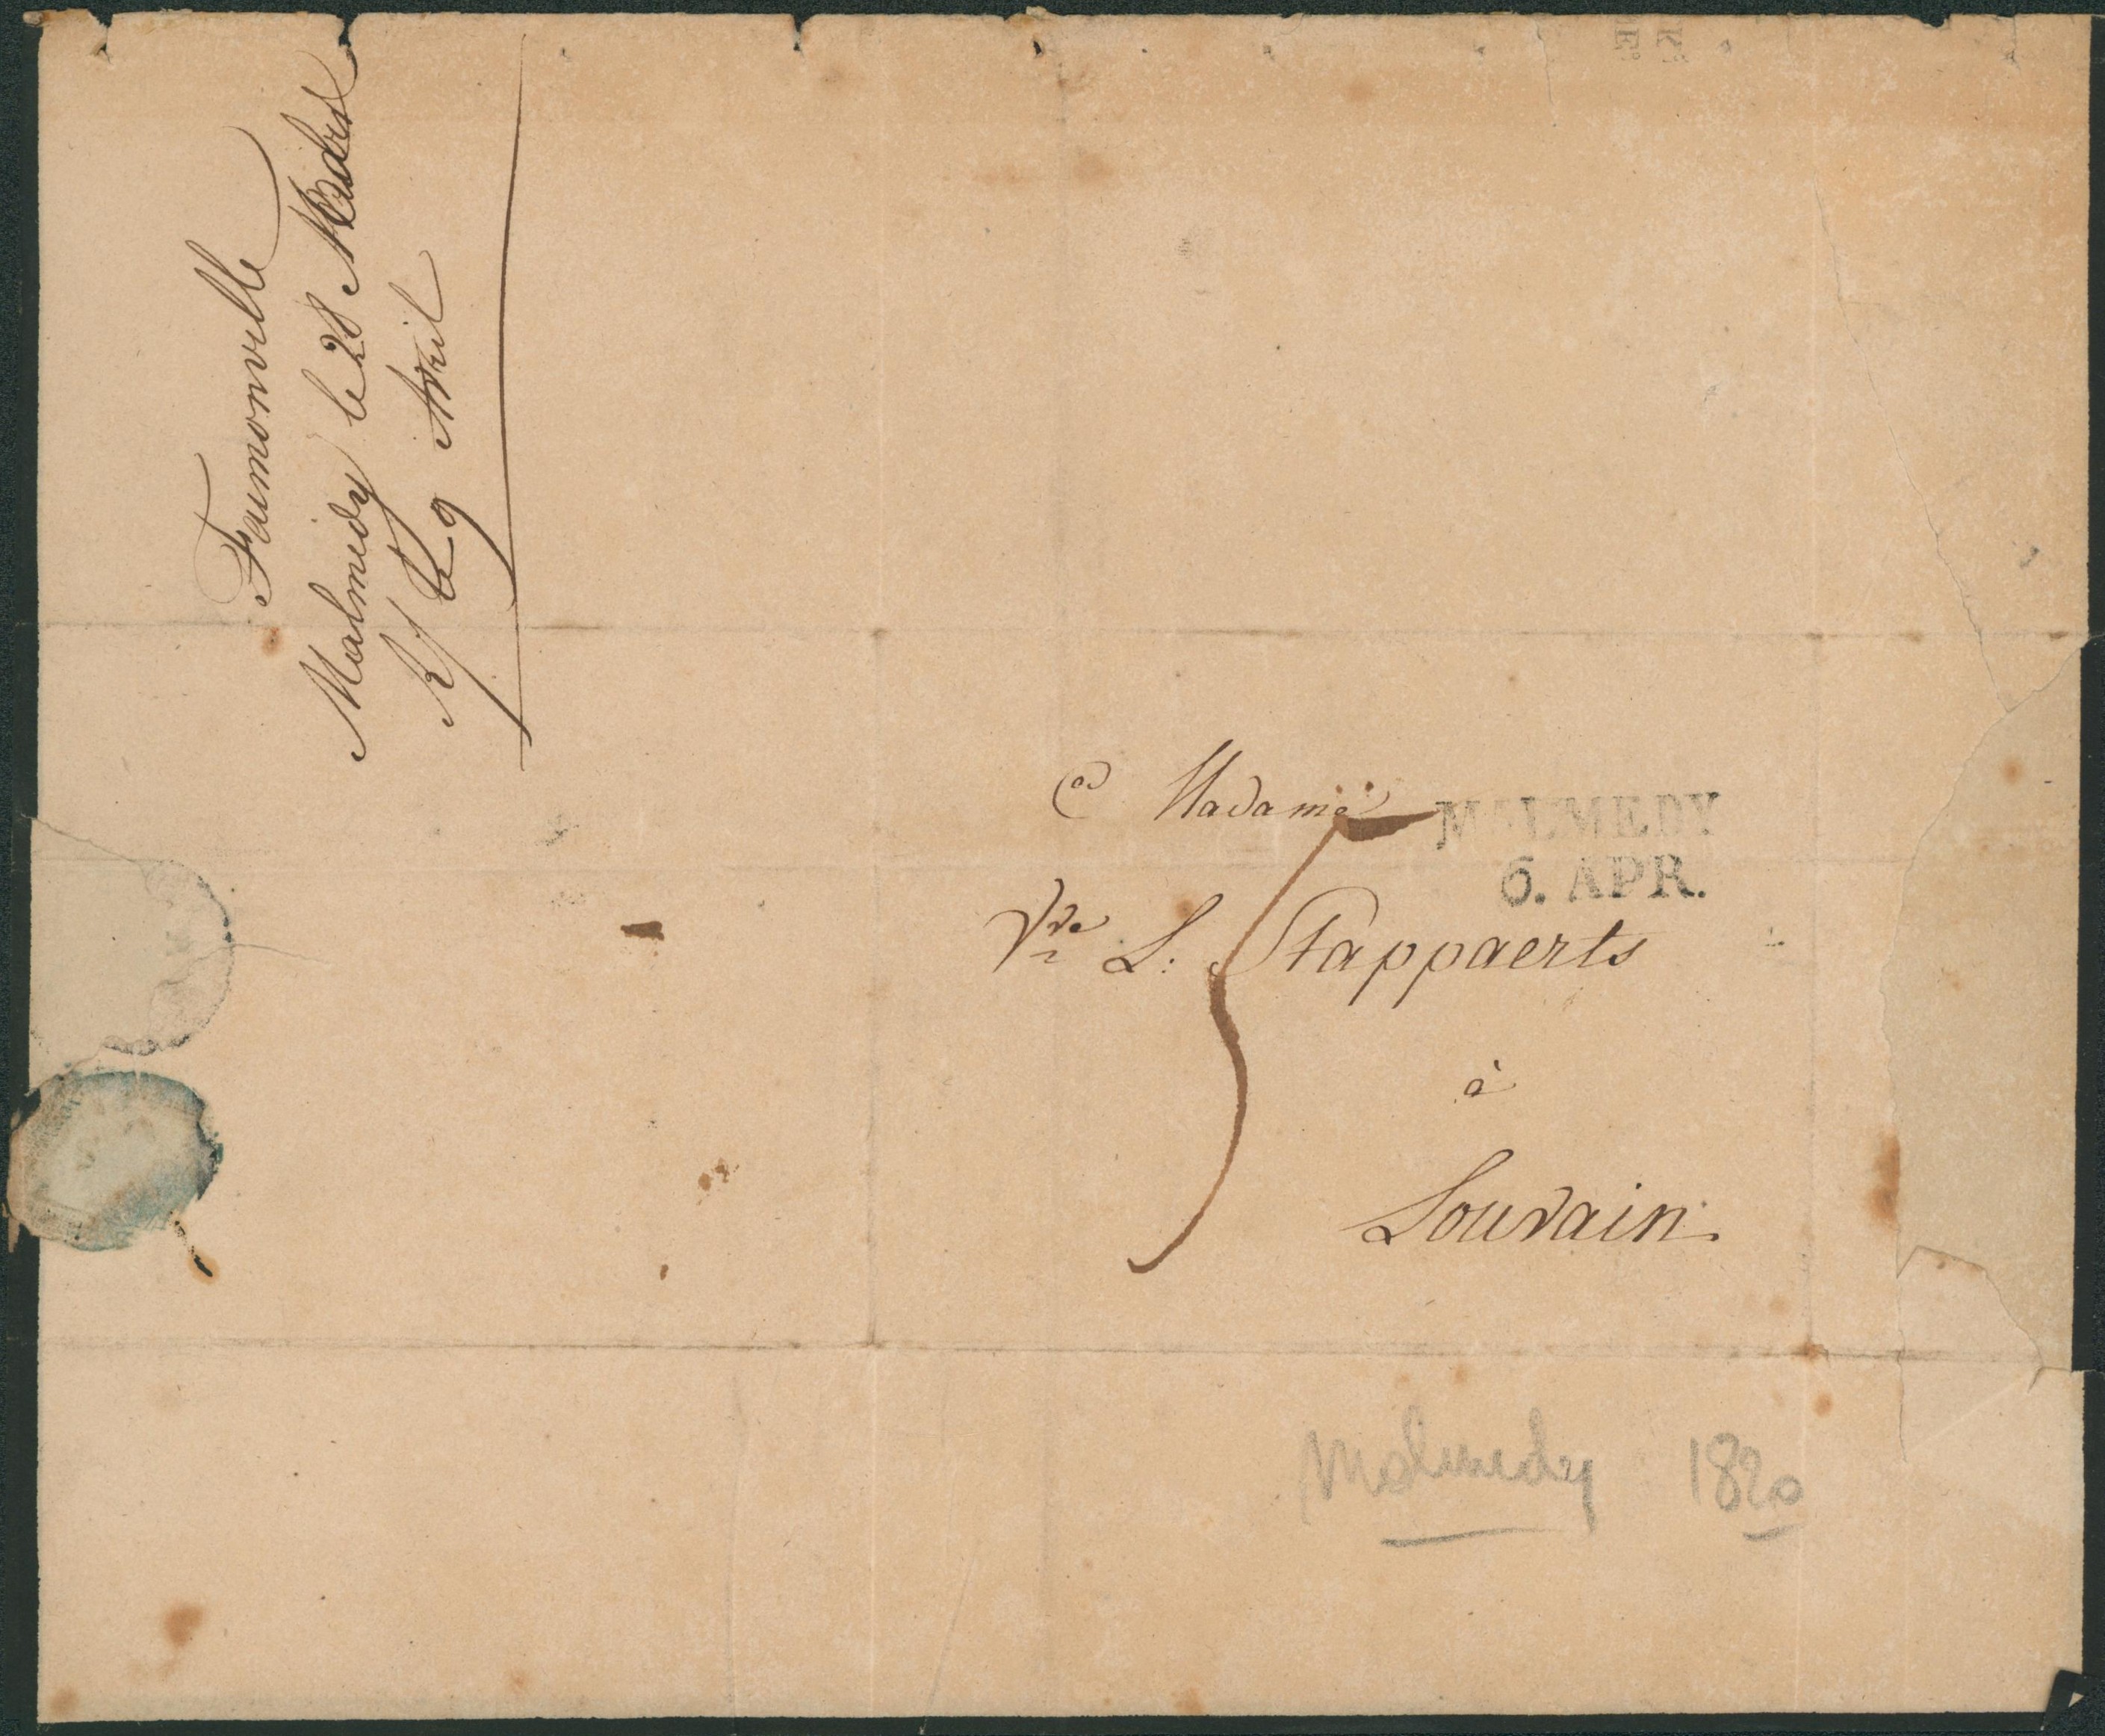 Malmedy le 28
R/ le 9 Avril
a Madame
MALMEDY
6. APR.
5
Vve L: Stappaerts
à
Louvain
Malmedy 1820